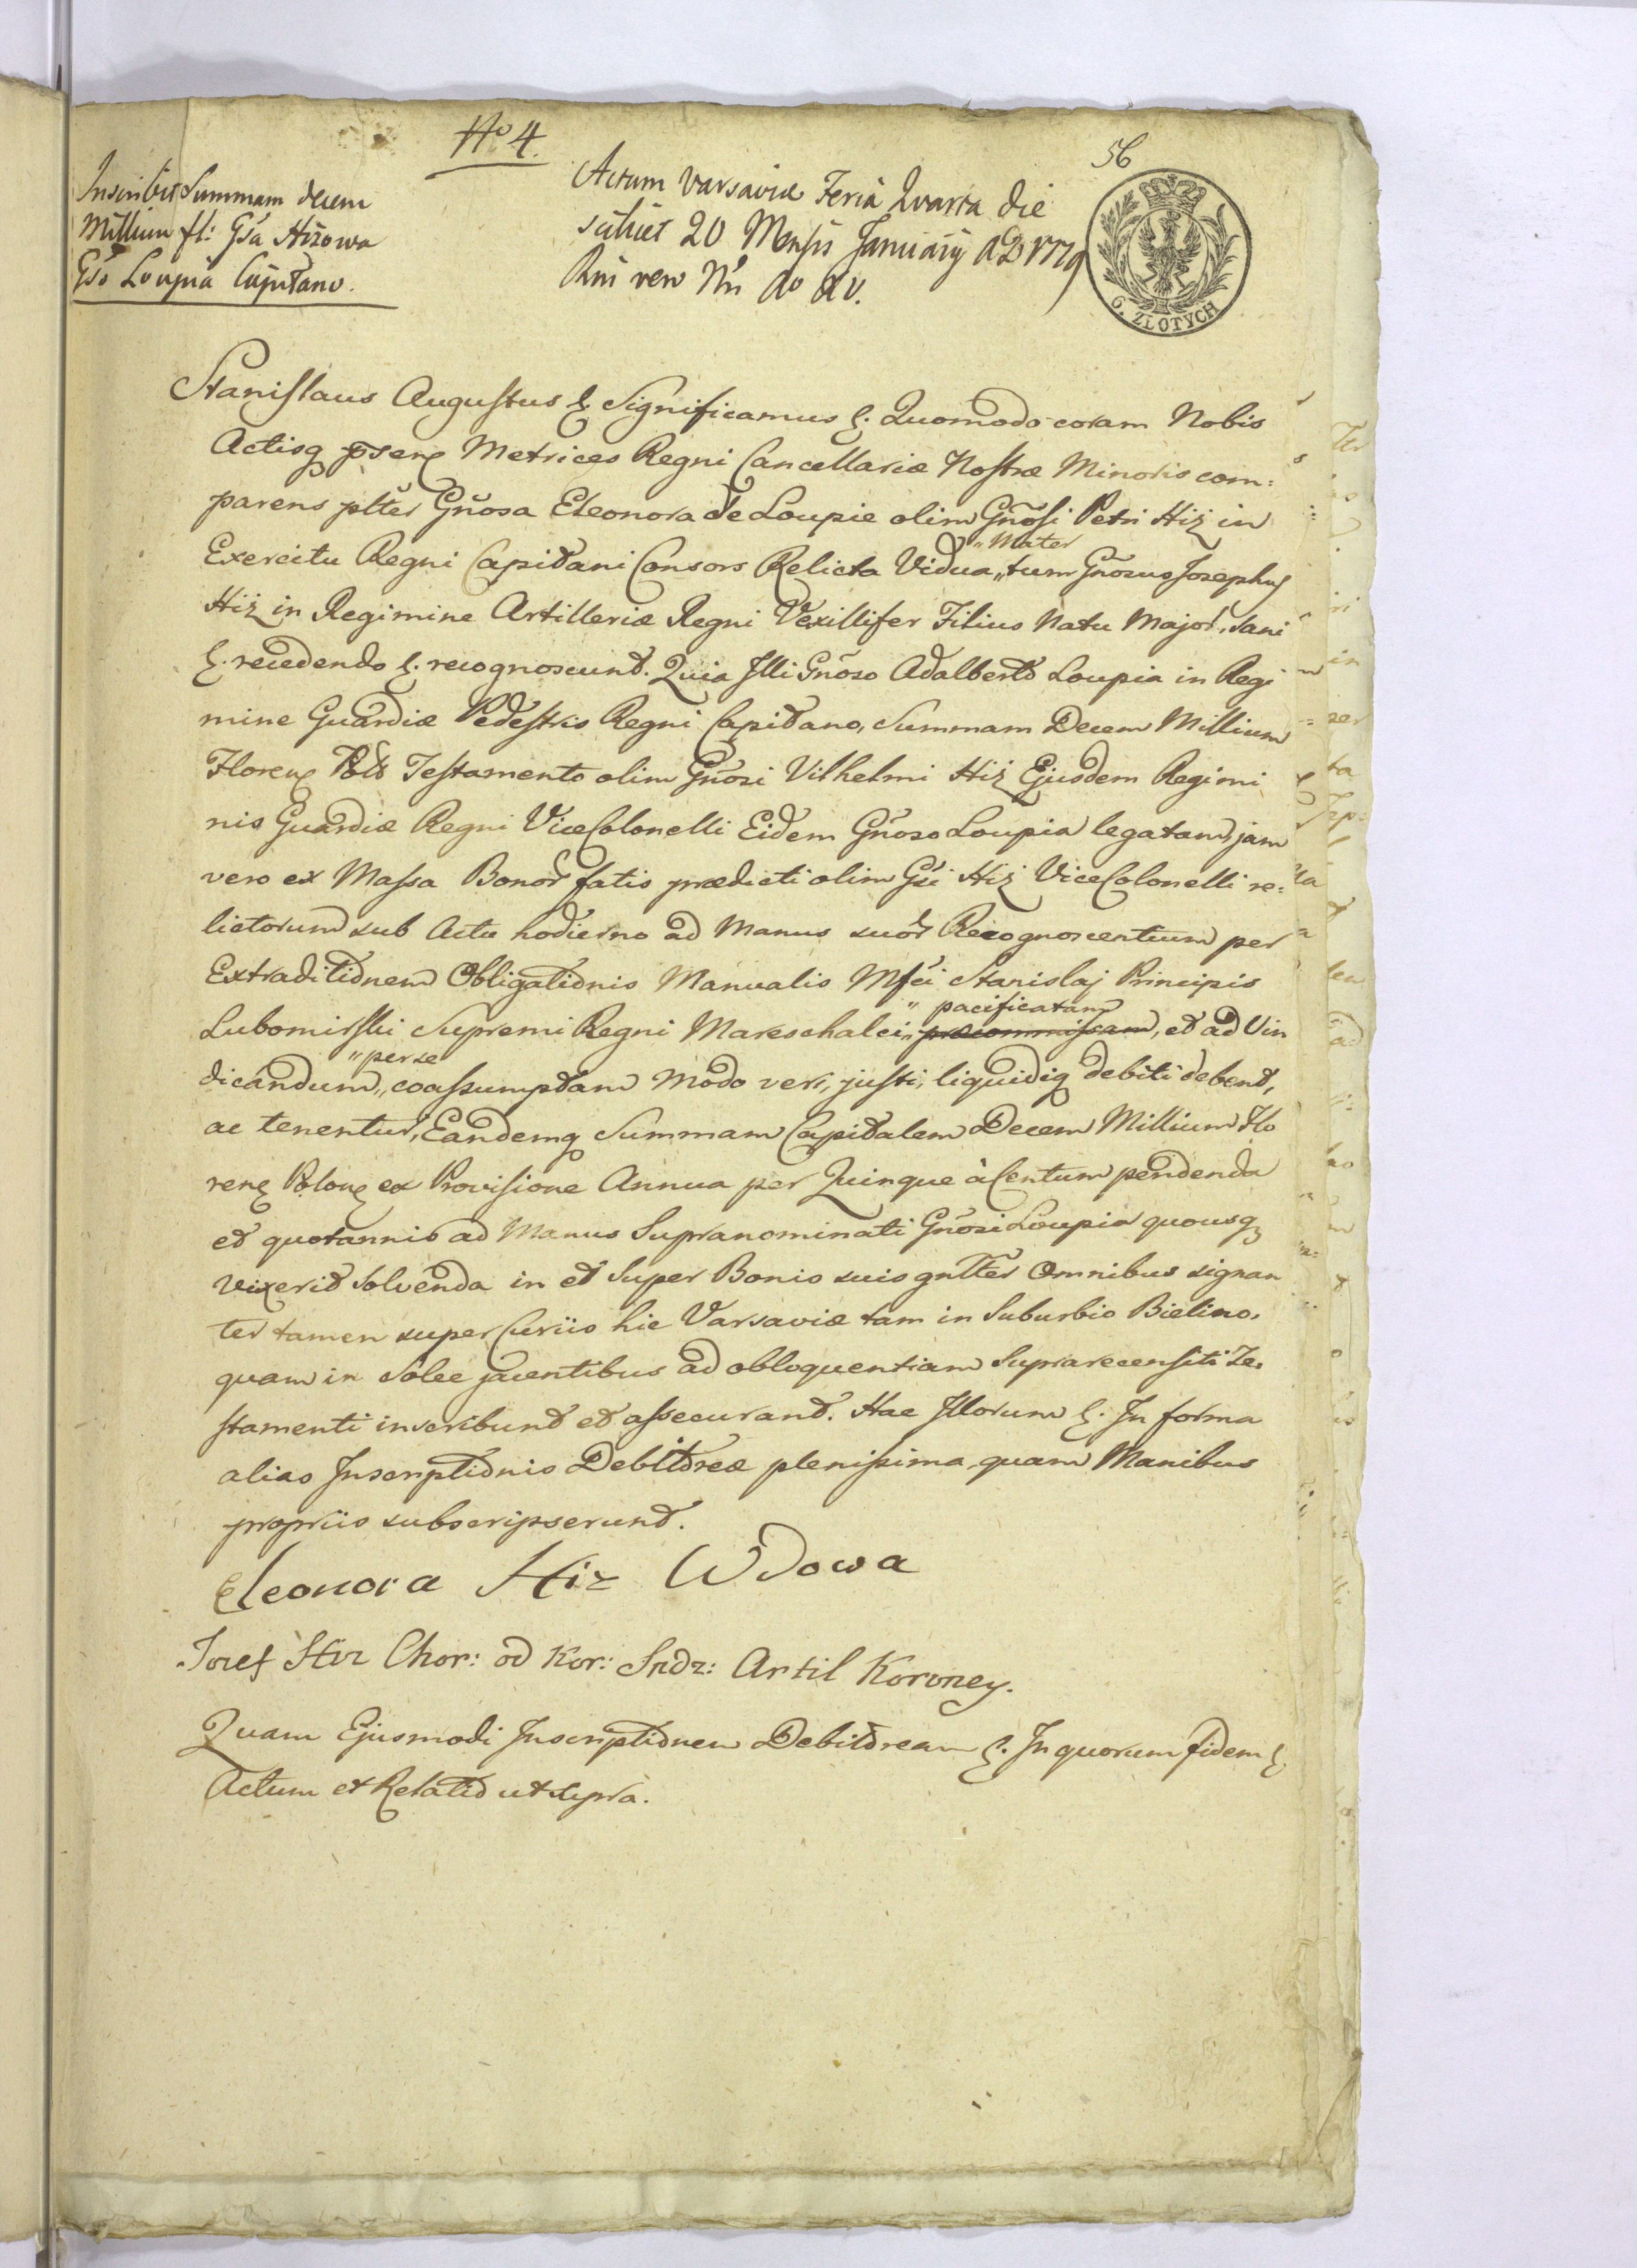 No 4.
56
Inscribit Summam decem
Millium fl: Gsa Hizowa
Gso Loupia Capitano.
Actum Varsaviæ Feria Quarta die
scilicet 20 Mensis Januarij AD 1779
Rni vero Nri Ao XV.
6. ZŁOTYCH
Stanislaus Augustus &. Significamus &. Quomodo coram Nobis
Actisq pseng Metrices Regni Cancellariæ Nostræ Minoris com:
parens plter Gñosa Eleonora de Loupie olim Gñosi Petri Hiz in
Exercitu Regni Capitani Consors Relicta Vidua „ tum Gñosus Josephus
„ Mater
Hiz in Regimine Artilleriæ Regni Vexillifer Filius Natu Major, sani
&. recedendo &. recognoscunt. Quia Illi Gñoso Adalberto Loupia in Regi
mine Guardiæ Pedestris Regni Capitano, Summam Decem Millium
Floreng Testamento olim Gñosi Vilhelmi Hiz Ejusdem Regimi
nis Guardiæ Regni ViceColonelli Eidem Gñoso Loupia legatam, jam
vero ex Massa Bonor fatis prædicti olim Gsi Hiz ViceColonelli re:
lictorum sub Actu hodierno ad Manus suor Recognoscentium per
Extraditionem Obligationis Manualis Mfci Stanislaj Principis
„ pacificatam
Lubomirski Supremi Regni Mareschalci „ præcommissam, et ad Vin
„ per se
dicandum „ coassumptam modo veri, justi, liquidiq debiti debent,
ac tenentur, Eandemq Summam Capitalem Decem Millium Flo
reng Polong ex Provisione Annua per Quinque à Centum pendenda
et quotannis ad Manus Supranominati Gñosi Loupia quousq
vixerit solvenda in et super Bonis suis gnlter Omnibus signan
ter tamen super Curiis hic Varsaviæ tam in Suburbio Bielino,
quam in Solec jacentibus ad obloquentiam Suprarecensiti Te,
stamenti inscribunt et assecurant. Hac Illorum &. In forma
alias Inscriptionis Debitoreæ plenissima, quam Manibus
propriis subscripserunt.
Eleonora Hiz Wdowa
Jozef Hiz Chor: od Kor: Artil Koroney.
Quam Ejusmodi Inscriptionem Debitoream &. In quorum fidem &.
Actum et Relatio ut supra.